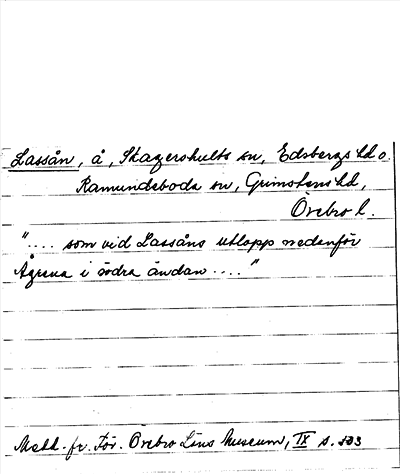 Lassån, å, Skagershults sn, Edsbergs hd o.
Ramundeboda sn, Grimstens hd,
Örebro l.
".... som vid Lassåns utlopp nedanför
i södra ändan ...."
Medd. fr. För. Örebro Läns Museum, IX s.